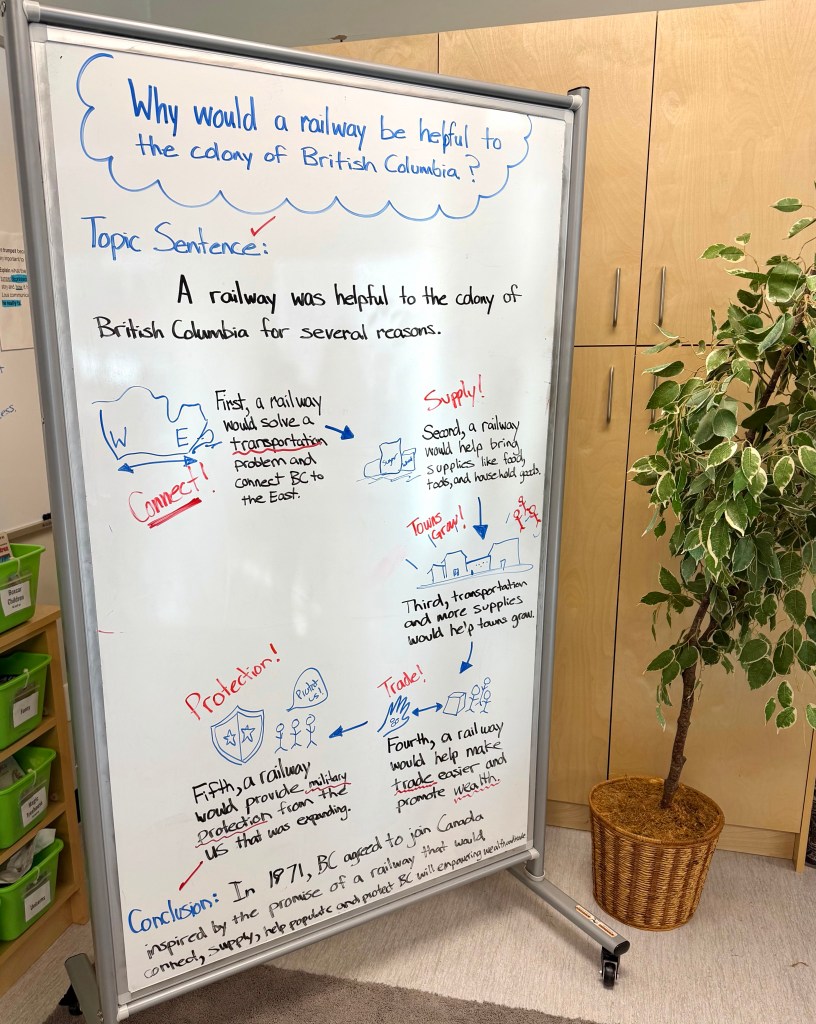 Why would a railway be helpful to
the colony of British Columbia?
Topic Sentence:
A railway was helpful to the colony of
British Columbia for several reasons.
W E
Connect!
First, a railway
would solve a
transportation
problem and
connect BC to
the East.
Supply!
Second, a railway
would help bring
supplies like food,
tools, and household goods.
Towns
Grow!
Third, transportation
and more supplies
would help towns grow.
Trade!
Fourth, a railway
would help make
trade easier and
promote wealth.
Protection!
us!
Fifth, a railway
would provide military
protection from the
US that was expanding.
Conclusion: In 1871, BC agreed to join Canada
inspired by the promise of a railway that would
connect, supply, help populate and protect BC will empowering wealth and trade